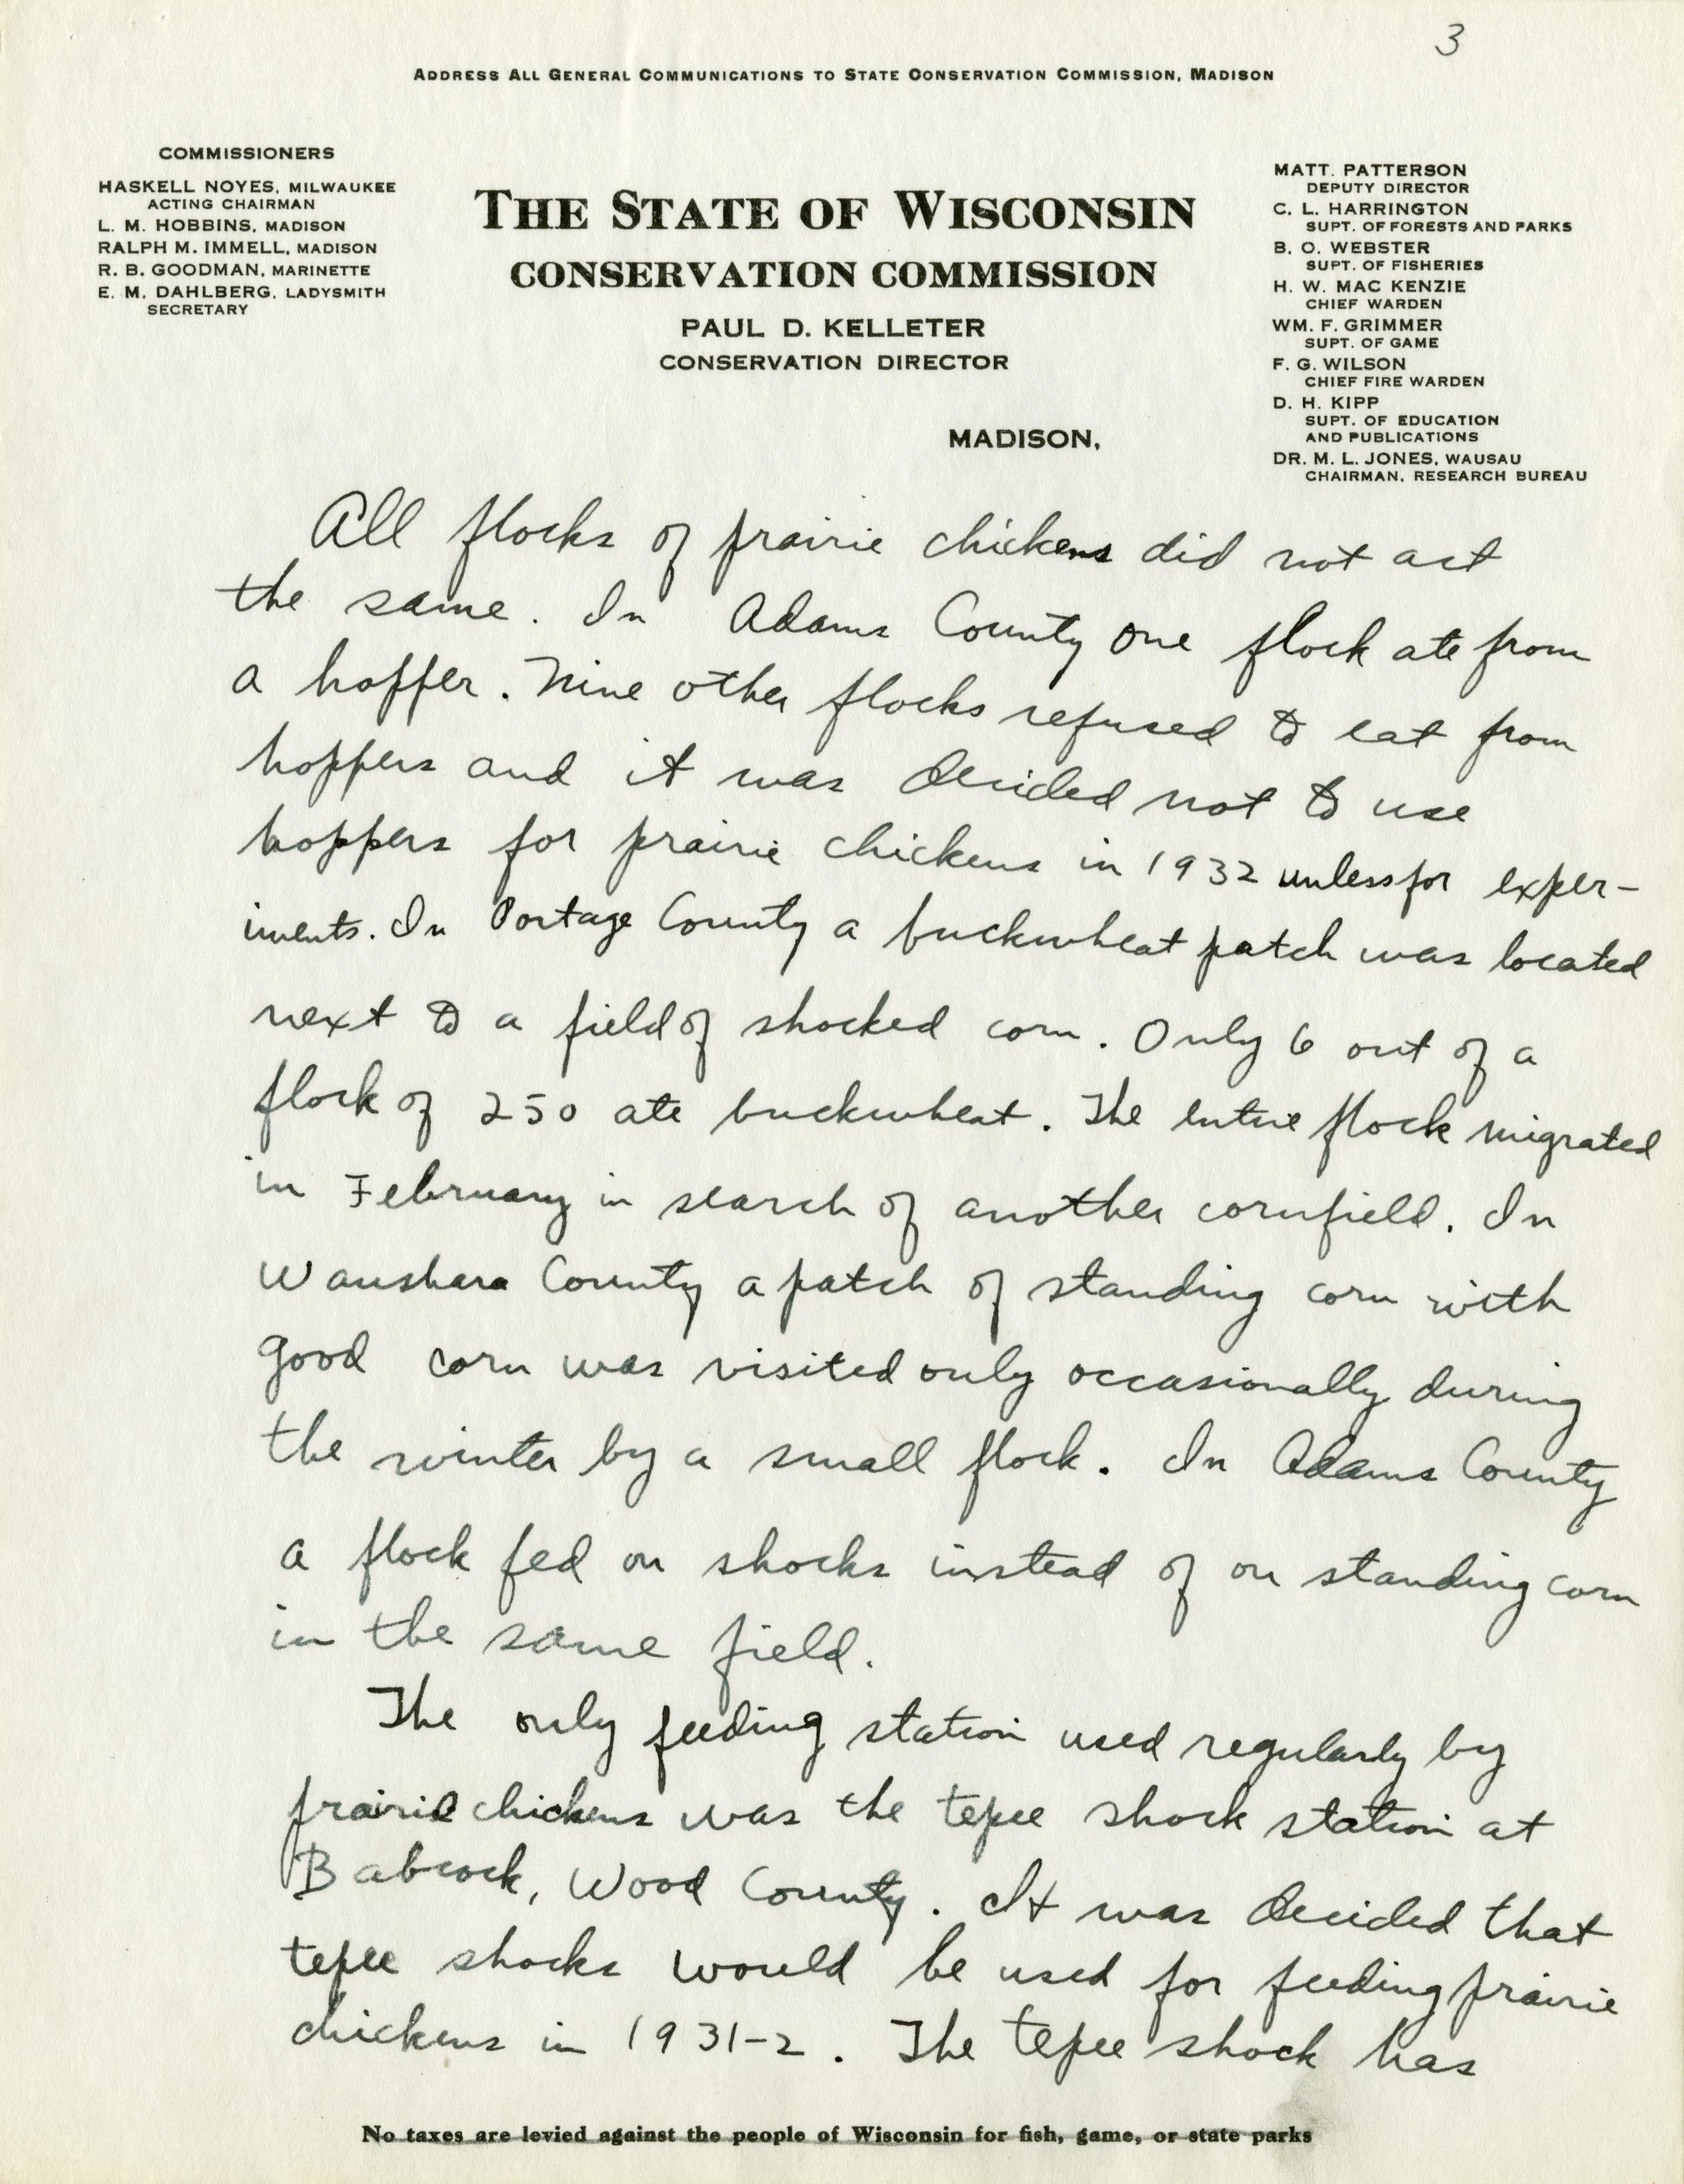 3
ADDRESS ALL GENERAL COMMUNICATIONS TO STATE CONSERVATION COMMISSION, MADISON
COMMISSIONERS
HASKELL NOYES, MILWAUKEE
ACTING CHAIRMAN
L. M. HOBBINS, MADISON
RALPH M. IMMELL, MADISON
R. B. GOODMAN, MARINETTE
E. M. DAHLBERG, LADYSMITH
SECRETARY
THE STATE OF WISCONSIN
CONSERVATION COMMISSION
PAUL D. KELLETER
CONSERVATION DIRECTOR
MADISON,
MATT. PATTERSON
DEPUTY DIRECTOR
C. L. HARRINGTON
SUPT. OF FORESTS AND PARKS
B. O. WEBSTER
SUPT. OF FISHERIES
H. W. MAC KENZIE
CHIEF WARDEN
WM. F. GRIMMER
SUPT. OF GAME
F. G. WILSON
CHIEF FIRE WARDEN
D. H. KIPP
SUPT. OF EDUCATION
AND PUBLICATIONS
DR. M. L. JONES, WAUSAU
CHAIRMAN, RESEARCH BUREAU
All flocks of prairie chickens did not act
the same. In Adams County one flock ate from
a hopper. Nine other flocks refused to eat from
hoppers and it was decided not to use
hoppers for prairie chickens in 1932 unless for exper-
iments. In Portage County a buckwheat patch was located
next to a field of shocked corn. Only 6 out of a
flock of 250 ate buckwheat. The entire flock migrated
in February in search of another cornfield. In
Waushara County a patch of standing corn with
good corn was visited only occasionally during
the winter by a small flock. In Adams County
a flock fed on shocks instead of on standing corn
in the same field.
The only feeding station used regularly by
prairie chickens was the tepee shock station at
Babcock, Wood County. It was decided that
tepee shocks would be used for feeding prairie
chickens in 1931-2. The tepee shock has
No taxes are levied against the people of Wisconsin for fish, game, or state parks